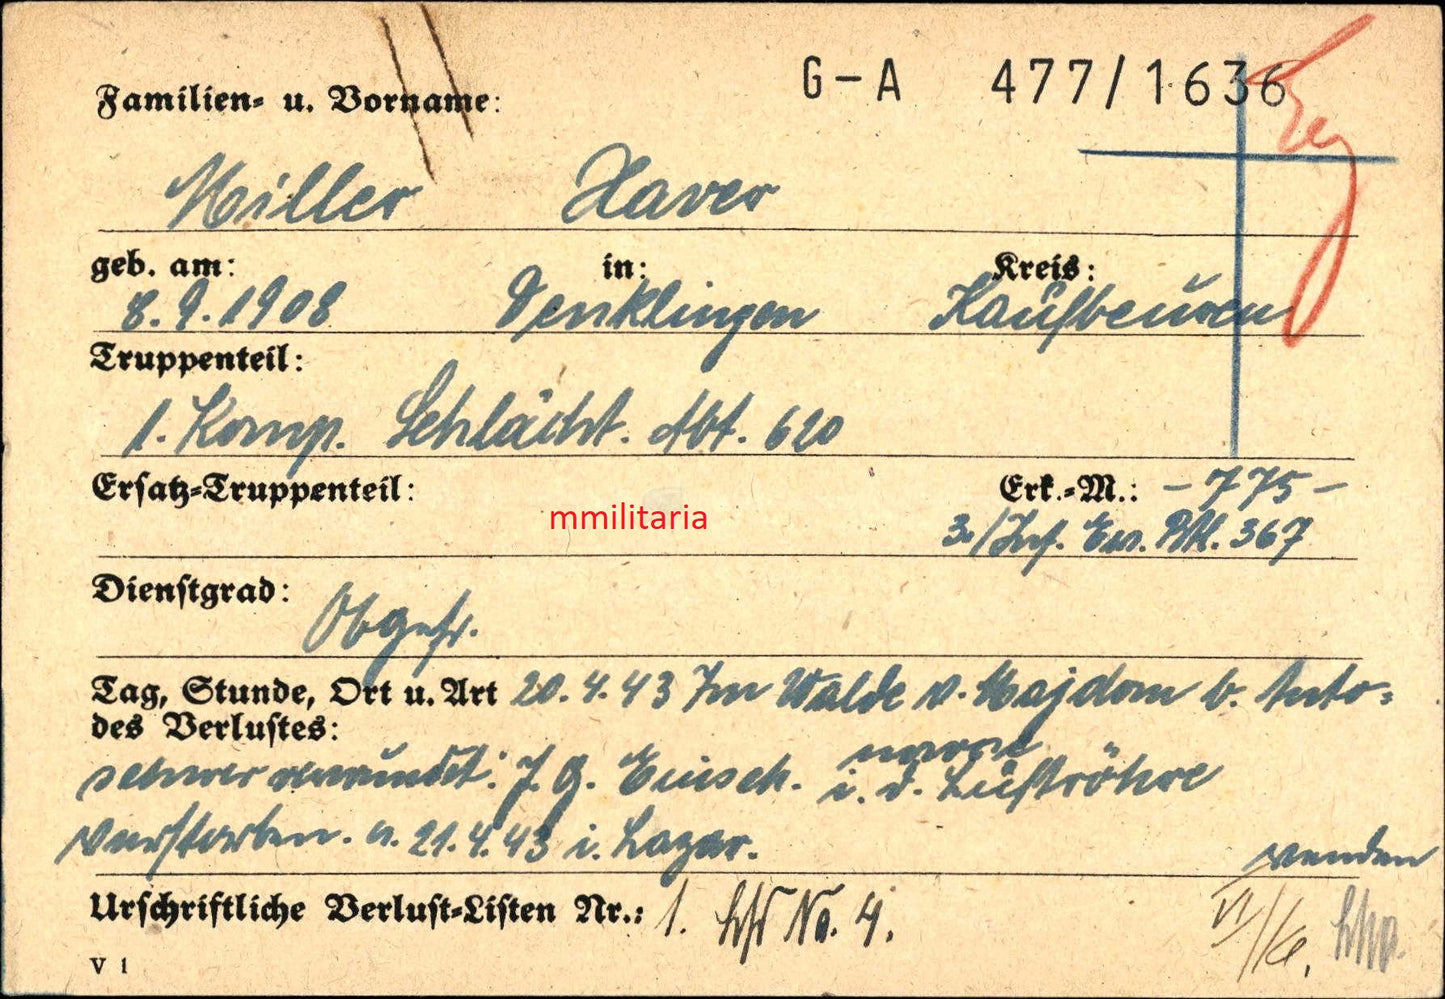 G-A 477/1636
Familien- u. Vorname:
Miller Xaver
geb. am: in: Kreis:
8.9.1908 Denklingen Kaufbeuren
Truppenteil:
1. Komp. Schlächt. Abt. 620
Ersatz-Truppenteil: Erk.-M.: -775-
mmilitaria
3./Inf. Ers. Btl. 367
Dienstgrad:
Obgefr.
Tag, Stunde, Ort u. Art 20.4.43 Im Walde v. Majdom b. Anto-
des Verlustes:
schwer verwundet: J. G. Einsch. i. d. Luftröhre
verstorben. a. 21.4.43 i. Lazar.
wenden
Urschriftliche Verlust-Listen Nr.: 1. No. 4.
V 1